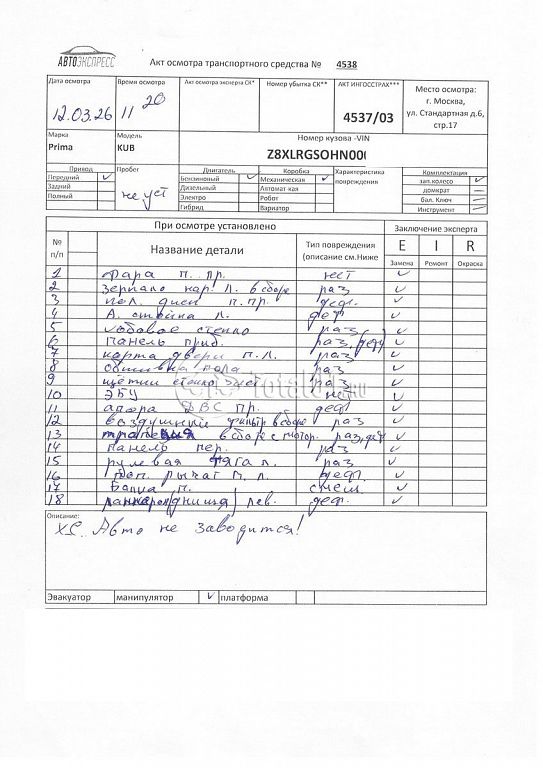 АВТОЭКСПРЕСС
Акт осмотра транспортного средства № 4538
Дата осмотра
12.03.26
Время осмотра
11 20
Акт осмотра эксперта СК*
Номер убытка СК**
АКТ ИНГОССТРАХ***
4537/03
Место осмотра:
г. Москва,
ул. Стандартная д.6,
стр.17
Марка
Prima
Модель
KUB
Номер кузова -VIN
Z8XLRGSOHN00(
Привод
Передний ✓
Задний
Полный
Пробег
не уст
Двигатель
Бензиновый ✓
Дизельный
Электро
Гибрид
Коробка
Механическая ✓
Автомат кая
Робот
Вариатор
Характеристика
повреждения
Комплектация
зап.колесо ✓
домкрат —
бал. Ключ —
Инструмент —
При осмотре установлено
Заключение эксперта
№ п/п
Название детали
Тип повреждения
(описание см.Ниже
E I R
Замена Ремонт Окраска
1 Фара п. пр. нест ✓
2 Зеркало нар. л. в сборе раз ✓
3 кол. диск п.пр. деф. ✓
4 А. стойка л. деф ✓
5 лобовое стекло раз. ✓
6 панель приб. раз, деф ✓
7 карта двери п.л. раз ✓
8 обшивка пола раз ✓
9 щётки стекло раз ✓
10 ЭБУ ✓
11 апора ДВС пр. деф ✓
12 воздушный фильтр в сборе раз ✓
13 трапеция в сборе с мотор. раз, деф ✓
14 панель пер. раз ✓
15 рулевая тяга л. раз ✓
16 поп. рычаг п. л. деф. ✓
17 Балка п. смещ. ✓
18 (днища) лев. деф. ✓
Total01.RU
Описание:
Авто не заводится!
Эвакуатор манипулятор ✓ платформа